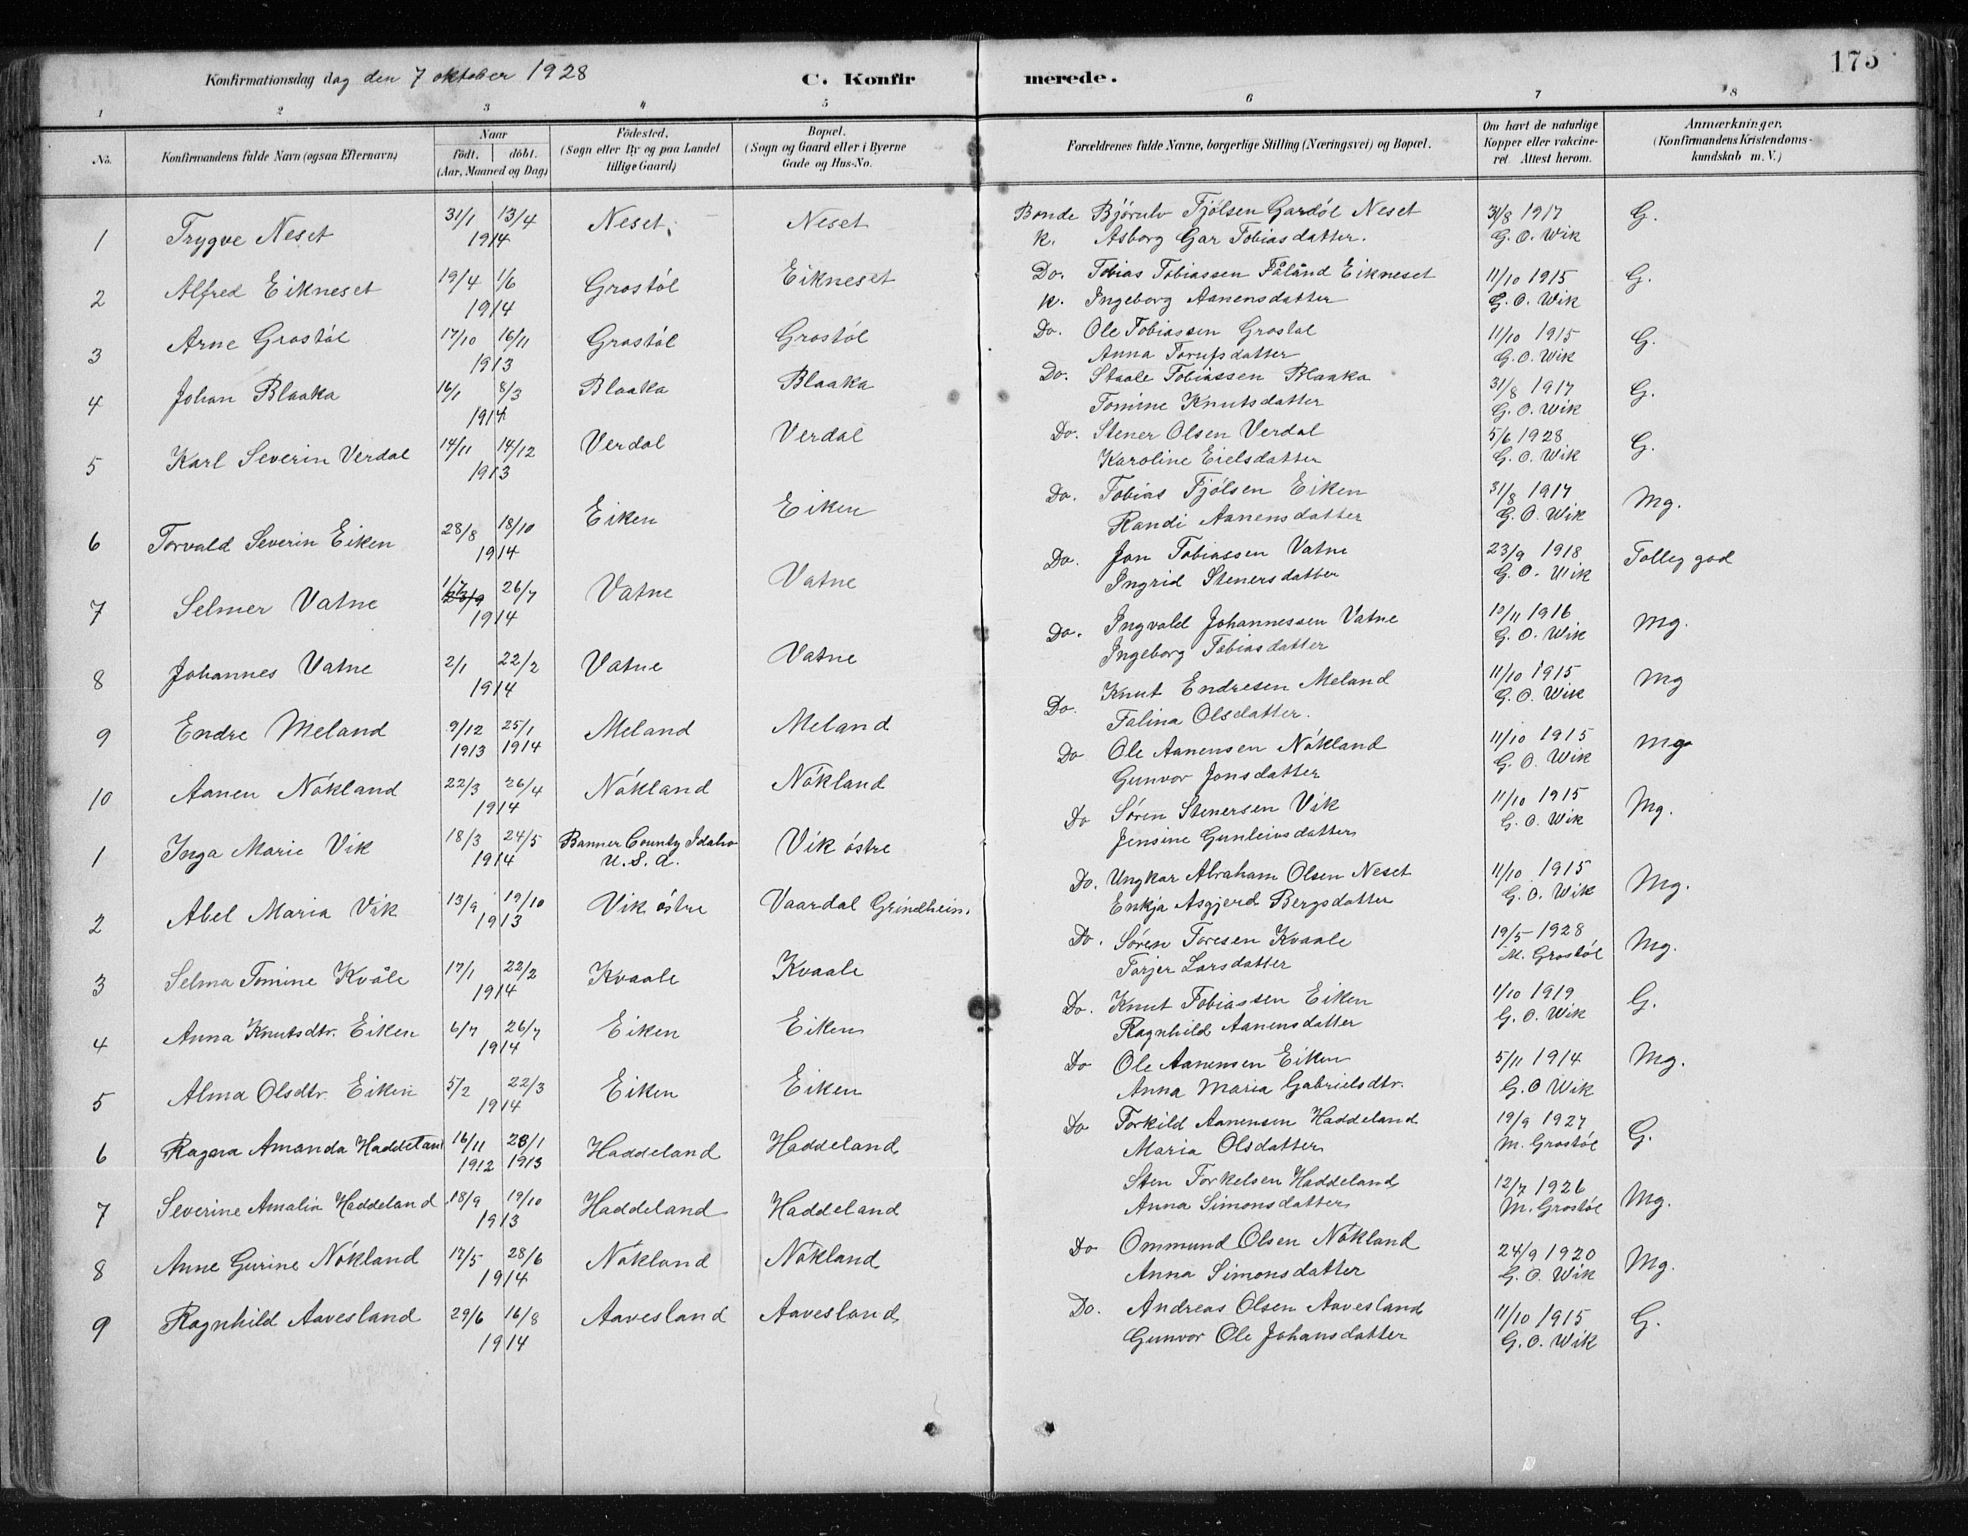 175
Konfirmationsdag dag den 7 oktober 1928 C. Konfirmerede.
1 2 3 4 5 6 7 8
No. Konfirmandens fulde Navn (ogsaa Efternavn) Naar født. døbt. (Aar, Maaned og Dag) Fødested. (Sogn eller By og paa Landet tillige Gaard) Bopæl. (Sogn og Gaard eller i Byerne Gade og Hus-No. Forældrenes fulde Navne, borgerlige Stilling (Næringsvei) og Bopæl. Om havt de naturlige Kopper eller vakcineret. Attest herom. Anmærkninger. (Konfirmandens Kristendomskundskab m. V.)
1 Trygve Neset 31/1 13/4 1914 Neset Neset Bonde Bjørulv Fjølsen Gardøl Neset 31/8 1917 G.
k. Asborg Gar Tobiasdatter. G. O. Wik
2 Alfred Eikneset 19/4 1/6 1914 Grostøl Eikneset Do. Tobias Tobiassen Fåland Eikneset 11/10 1915 G.
k. Ingeborg Aanensdatter G. O. Wik
3 Arne Grostøl 17/10 16/11 1913 Grostøl Grostøl Do. Ole Tobiassen Grostøl 11/10 1915 G.
Anna Torufsdatter G. O. Wik
4 Johan Blaaka 16/1 8/3 1914 Blaaka Blaaka Do. Staale Tobiassen Blaaka 31/8 1917 G.
Tomine Knutsdatter G. O. Wik
5 Karl Severin Verdal 14/11 14/12 1913 Verdal Verdal Do. Stener Olsen Verdal 5/6 1928 G.
Karoline Eielsdatter G. O. Wik
6 Torvald Severin Eiken 28/8 18/10 1914 Eiken Eiken Do. Tobias Fjølsen Eiken 31/8 1917 Mg.
Randi Aanensdatter G. O. Wik
7 Selmer Vatne 1/7 23/9 26/7 1914 Vatne Vatne Do. Jon Tobiassen Vatne 23/9 1918 Tolleg god
Ingrid Stenersdatter G. O. Wik
8 Johannes Vatne 2/1 22/2 1914 Vatne Vatne Do. Ingvald Johannessen Vatne 10/11 1916 Mg.
Ingeborg Tobiasdatter G. O. Wik
9 Endre Meland 9/12 1913 25/1 1914 Meland Meland Do. Knut Endresen Meland 11/10 1915 Mg
Talina Olsdatter. G. O. Wik
10 Aanen Nökland 22/3 26/4 1914 Nökland Nökland Do Ole Aanensen Nökland 11/10 1915 Mg
Gunvor Jonsdatter G. O. Wik
1 Inga Marie Vik 18/3 24/5 1914 Banner County Idaho U.S.A. Vik østre Do Søren Stenersen Vik 11/10 1915 Mg.
Jensine Gunleivsdatter G. O. Wik
2 Abel Maria Vik 13/9 19/10 1913 Vik østre Vaardal Grindheim. Do. Ungkar Abraham Olsen Neset 11/10 1915 Mg.
Enkja Asgjerd Bergsdatter G. O. Wik
3 Selma Tomine Kvåle 17/1 22/2 1914 Kvaale Kvaale Do. Søren Toresen Kvaale 19/5 1928 Mg.
Torjer Larsdatter M. Grostøl
4 Anna Knutsdtr. Eiken 6/7 26/7 1914 Eiken Eiken Do. Knut Tobiassen Eiken 1/10 1919 G.
Ragnhild Aanensdatter G. O. Wik
5 Alma Olsdtr. Eiken 5/2 22/3 1914 Eiken Eiken Do Ole Aanensen Eiken 5/11 1914 Mg.
Anna Maria Gabrielsdtr. G. O Wik
6 Ragna Amanda Haddeland 16/11 1912 28/1 1913 Haddeland Haddeland Do Torkild Aanensen Haddeland 19/9 1927 G.
Maria Olsdatter M. Grostøl
7 Severine Amalia Haddeland 18/9 19/10 1913 Haddeland Haddeland Sten Torkelsen Haddeland 12/7 1926 Mg.
Anna Simonsdatter M. Grostøl
8 Anne Gurine Nökland 17/5 28/6 1914 Nökland Nökland Do Ommund Olsen Nökland 24/9 1920 Mg.
Anna Simonsdatter G. O. Wik
9 Ragnhild Aavesland 29/6 16/8 1914 Aavesland Aavesland Do. Andreas Olsen Aavesland 11/10 1915 G.
Gunvor Ole Johansdatter G. O. Wik